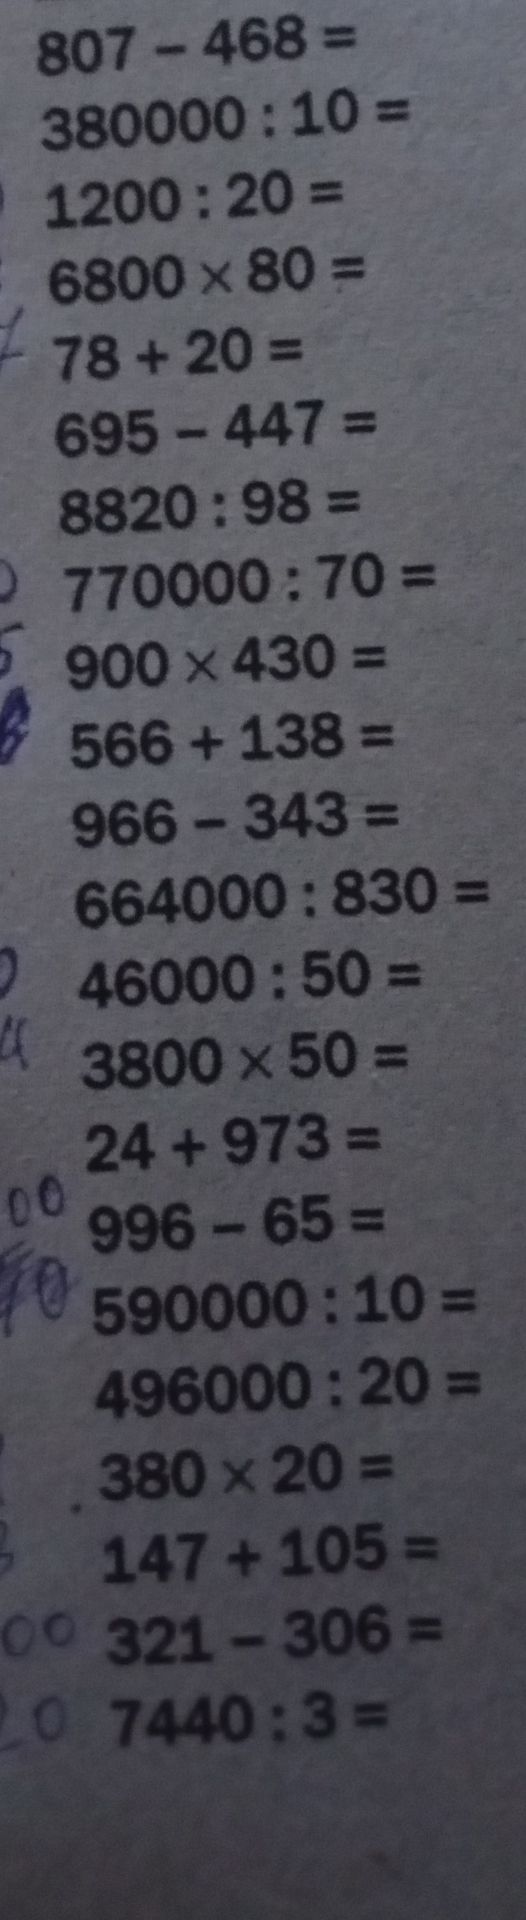 807 – 468 =
380000 : 10 =
1200 : 20 =
6800 × 80 =
78 + 20 =
695 – 447 =
8820 : 98 =
770000 : 70 =
900 × 430 =
566 + 138 =
966 – 343 =
664000 : 830 =
46000 : 50 =
3800 × 50 =
24 + 973 =
00
996 – 65 =
590000 : 10 =
496000 : 20 =
380 × 20 =
147 + 105 =
00
321 – 306 =
7440 : 3 =